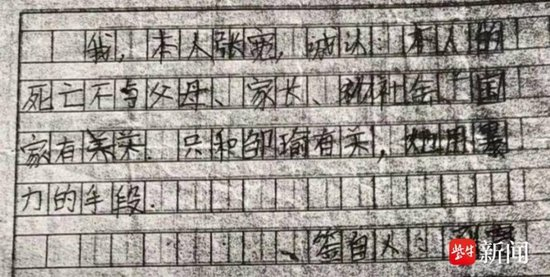 我，本人张宽，诚认：本人的
死亡不与父母、家长、社会、国
家有关. 只和邹瑜有关，用暴
力的手段.
签自人：
紫牛新闻